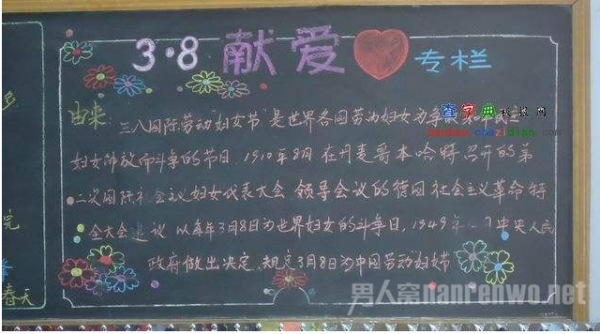 3·8献爱专栏
由来: 三八国际劳动妇女节 是世界各国劳动妇女为争
妇女解放而斗争的节日. 1910年8月 在丹麦哥本哈特召开的第
二次国际社会主义妇女代表大会 领导会议的德国社会主义革命
全大会建议 以每年3月8日为世界妇女的斗争日. 1949年 中央人民
政府做出决定. 规定3月8日为中国劳动妇女节
春天
查字典教案网
jiaoan.chazidian.com
男人窝nanrenwo.net